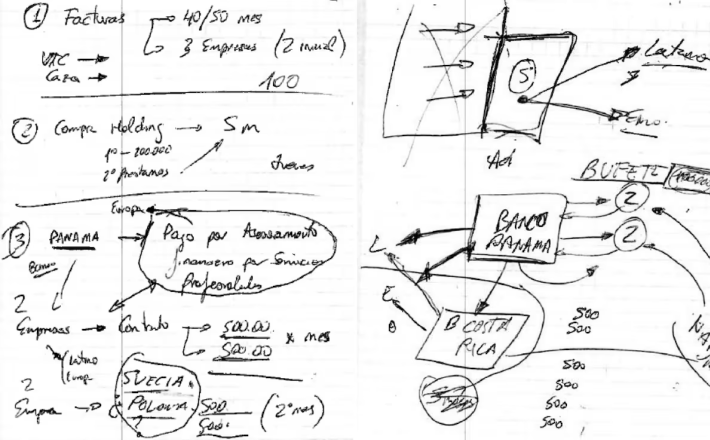 1 Facturas → 40/50 mes
→ 3 Empresas (2 inicial)
VTC →
Casa →
100
2 Compra Holding → 5m
1º - 200.000
2º Prestamos
Jueves
Europa
3 PANAMA → Pago por Asesoramiento
financiero por Servicios
Profesionales
Banco
2
Empresas → Contrato → 500.00 x mes
500.00
Latino
Europ
2
Empresa → SUECIA
POLONIA
?
500
500
(2º mes)
5
Latino
BUFETE
BANCO
PANAMA
2
2
L
E
B COSTA
RICA
500
500
500
500
500
500